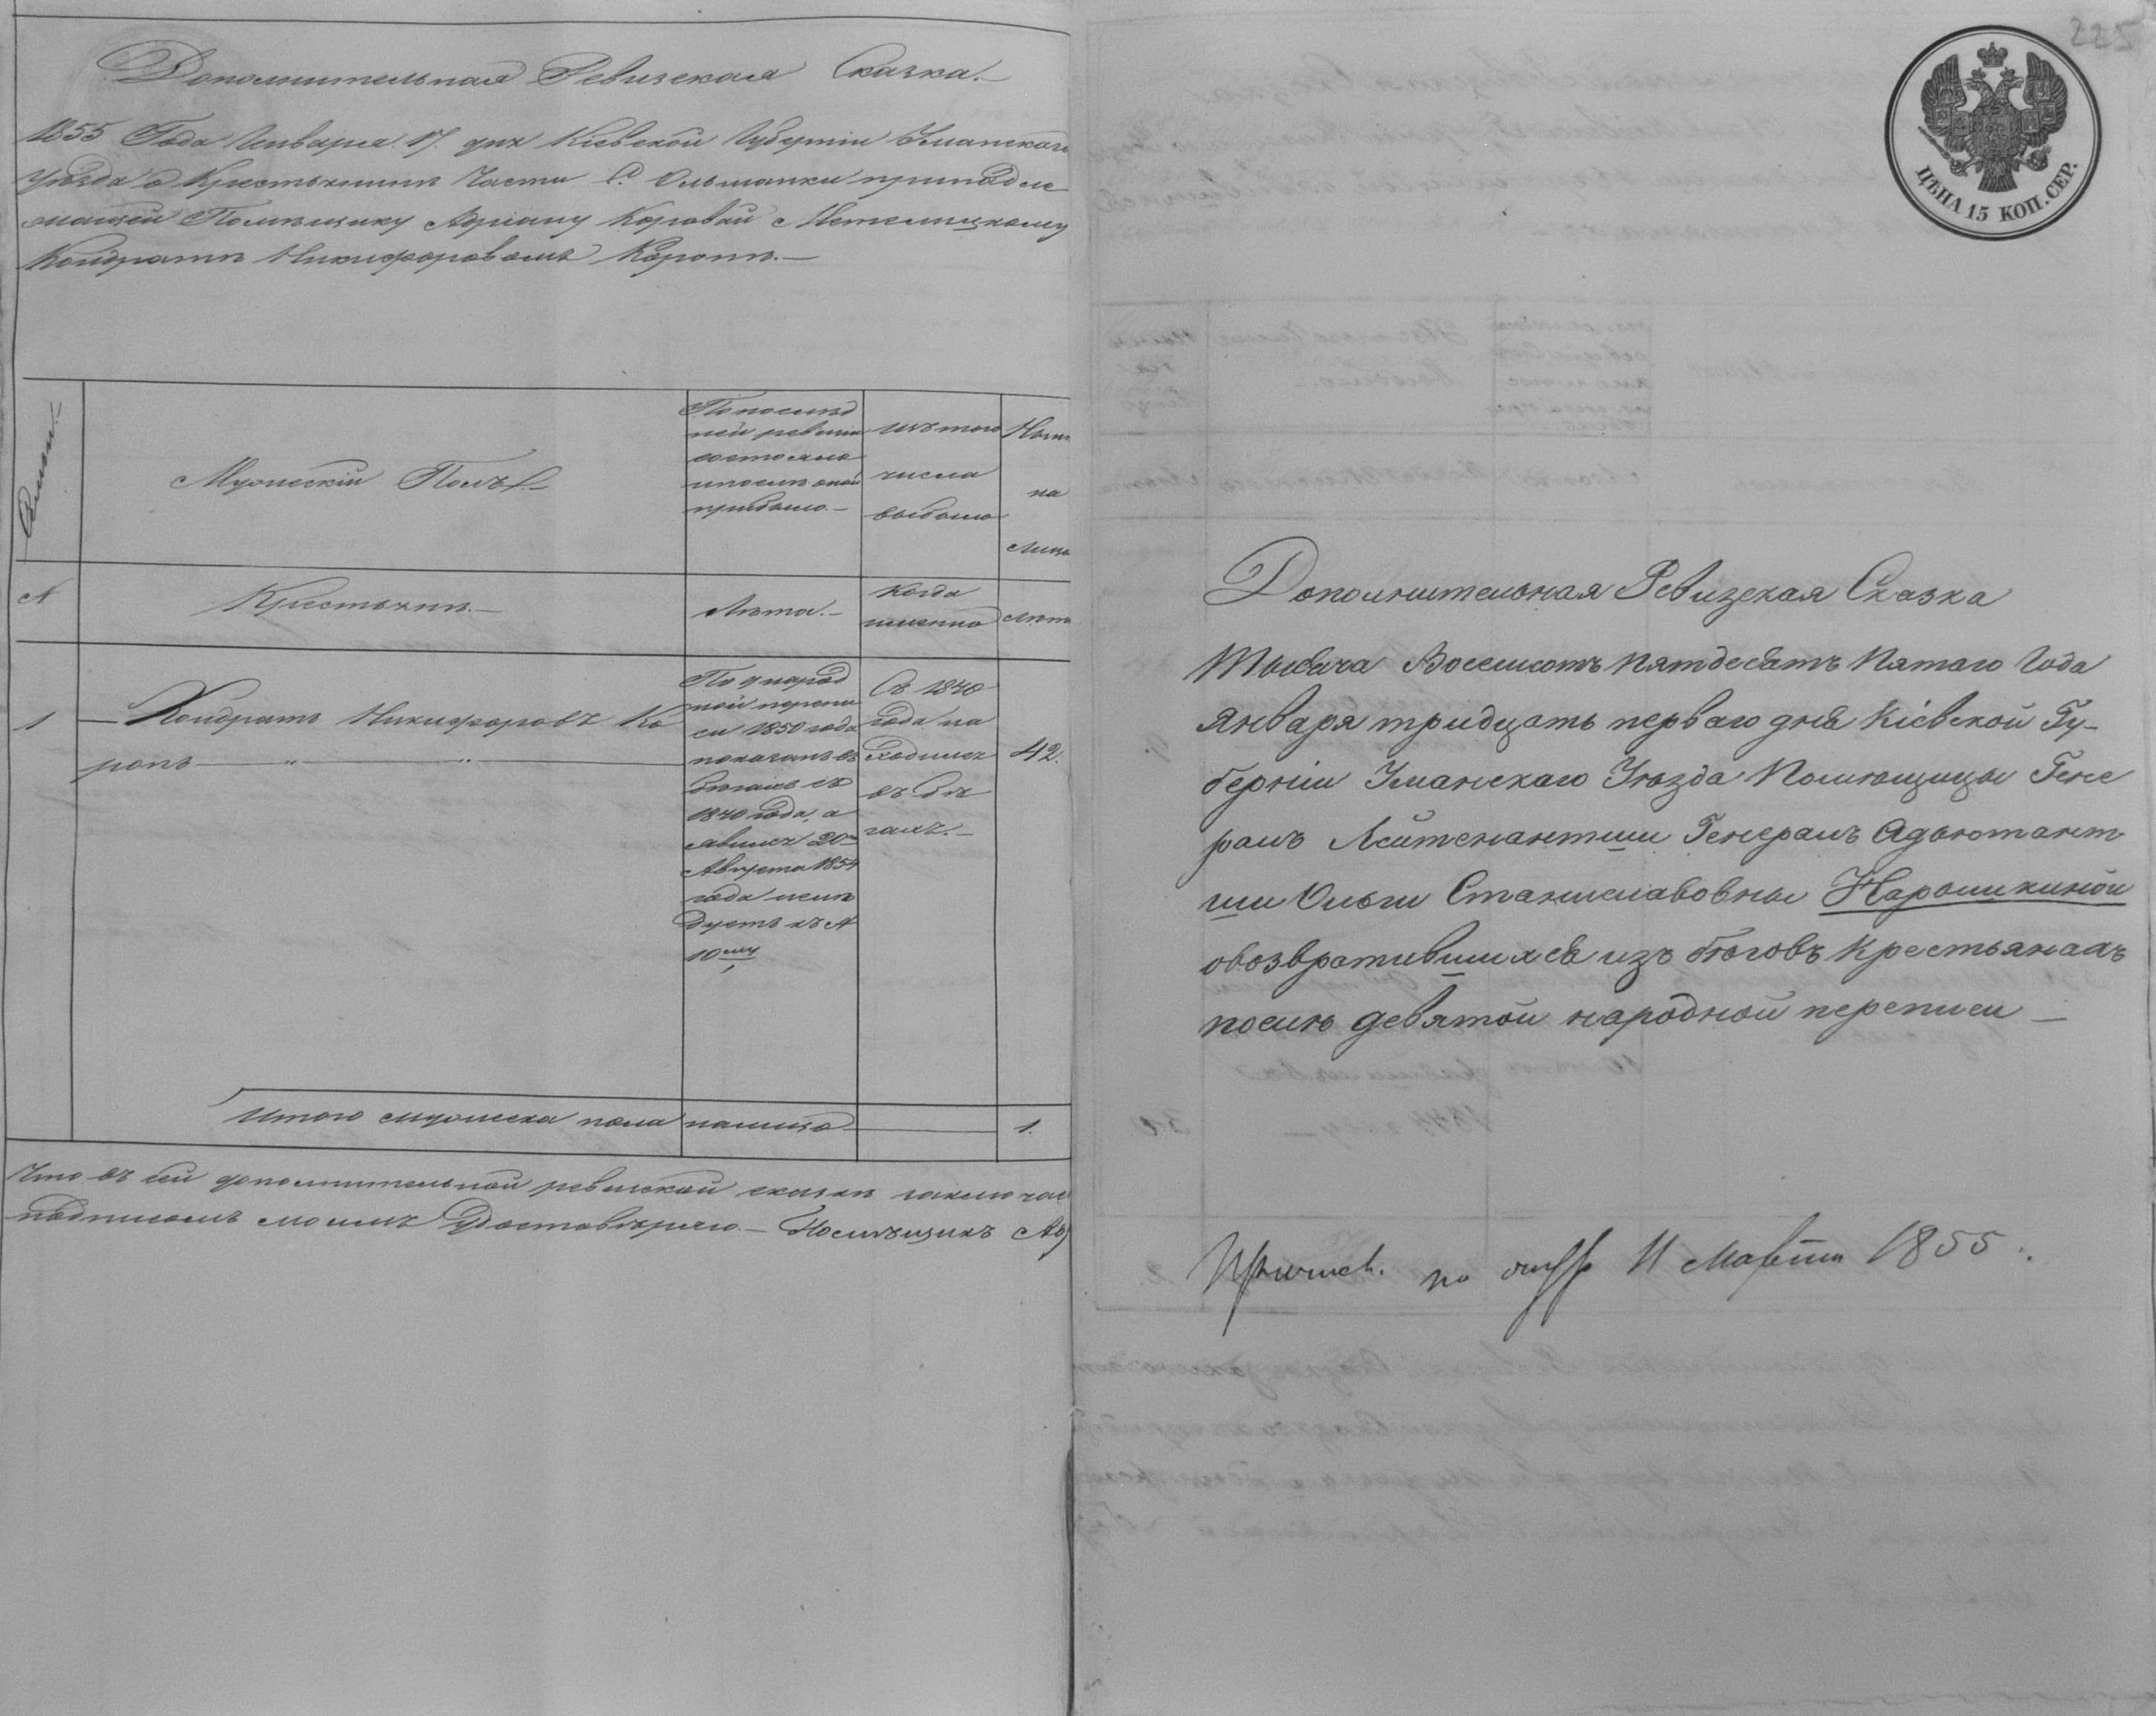 Дополнительная Ревизская Сказка.—
1855 Года Января 17. дня Кіевской Губерніи Уманскаго
уѣзда о Крестьянинѣ Части С. Ольшанки принадле
жащей Помѣщику Адріану Коровай Метелицкому
Кондратѣ Никифоровомъ Коропѣ.—
Мужескій Полъ.—
Попослѣд
ней ревизіи
состояло
ипослѣ оной
прибыло.—
изъ того
числа
выбыло
на
Лицо
№
Крестьянѣ.—
Лѣта.—
Когда
именно
Лѣта
1
— Кондратъ Никифоровъ Ко
ропъ — „ — „ —
По 9 народ
ной перепи
си 1850 года
показанъ въ
бѣгахъ съ
1840 года, а
явился 20го
Августа 1854
года слѣ
дуетъ къ №
10му
Съ 1840
года на
ходился
въ бѣ
гахъ.—
42.
Итого мужеска пола налицо — 1.
Что въ сей дополнительной ревизской сказкѣ заключае
подписомъ моимъ Удостовѣряю.— Помѣщикъ
225
ЦѢНА 15 КОП. СЕР.
Дополнительная Ревизская Сказка
Тысяча Восемсотъ Пятдесятъ Пятаго Года
Января тридцать перваго дня Кіевской Гу-
берніи Уманскаго Уѣзда Помѣщицы Гене
ралъ Лейтенантши Генералъ Адъютант
ши Ольги Станиславовны Нарышкиной
овозвратившихся изъ бѣговъ Крестьянахъ
послѣ девятой народной переписи —
по 11 Марта 1855.